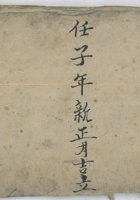 任子年新正月吉立